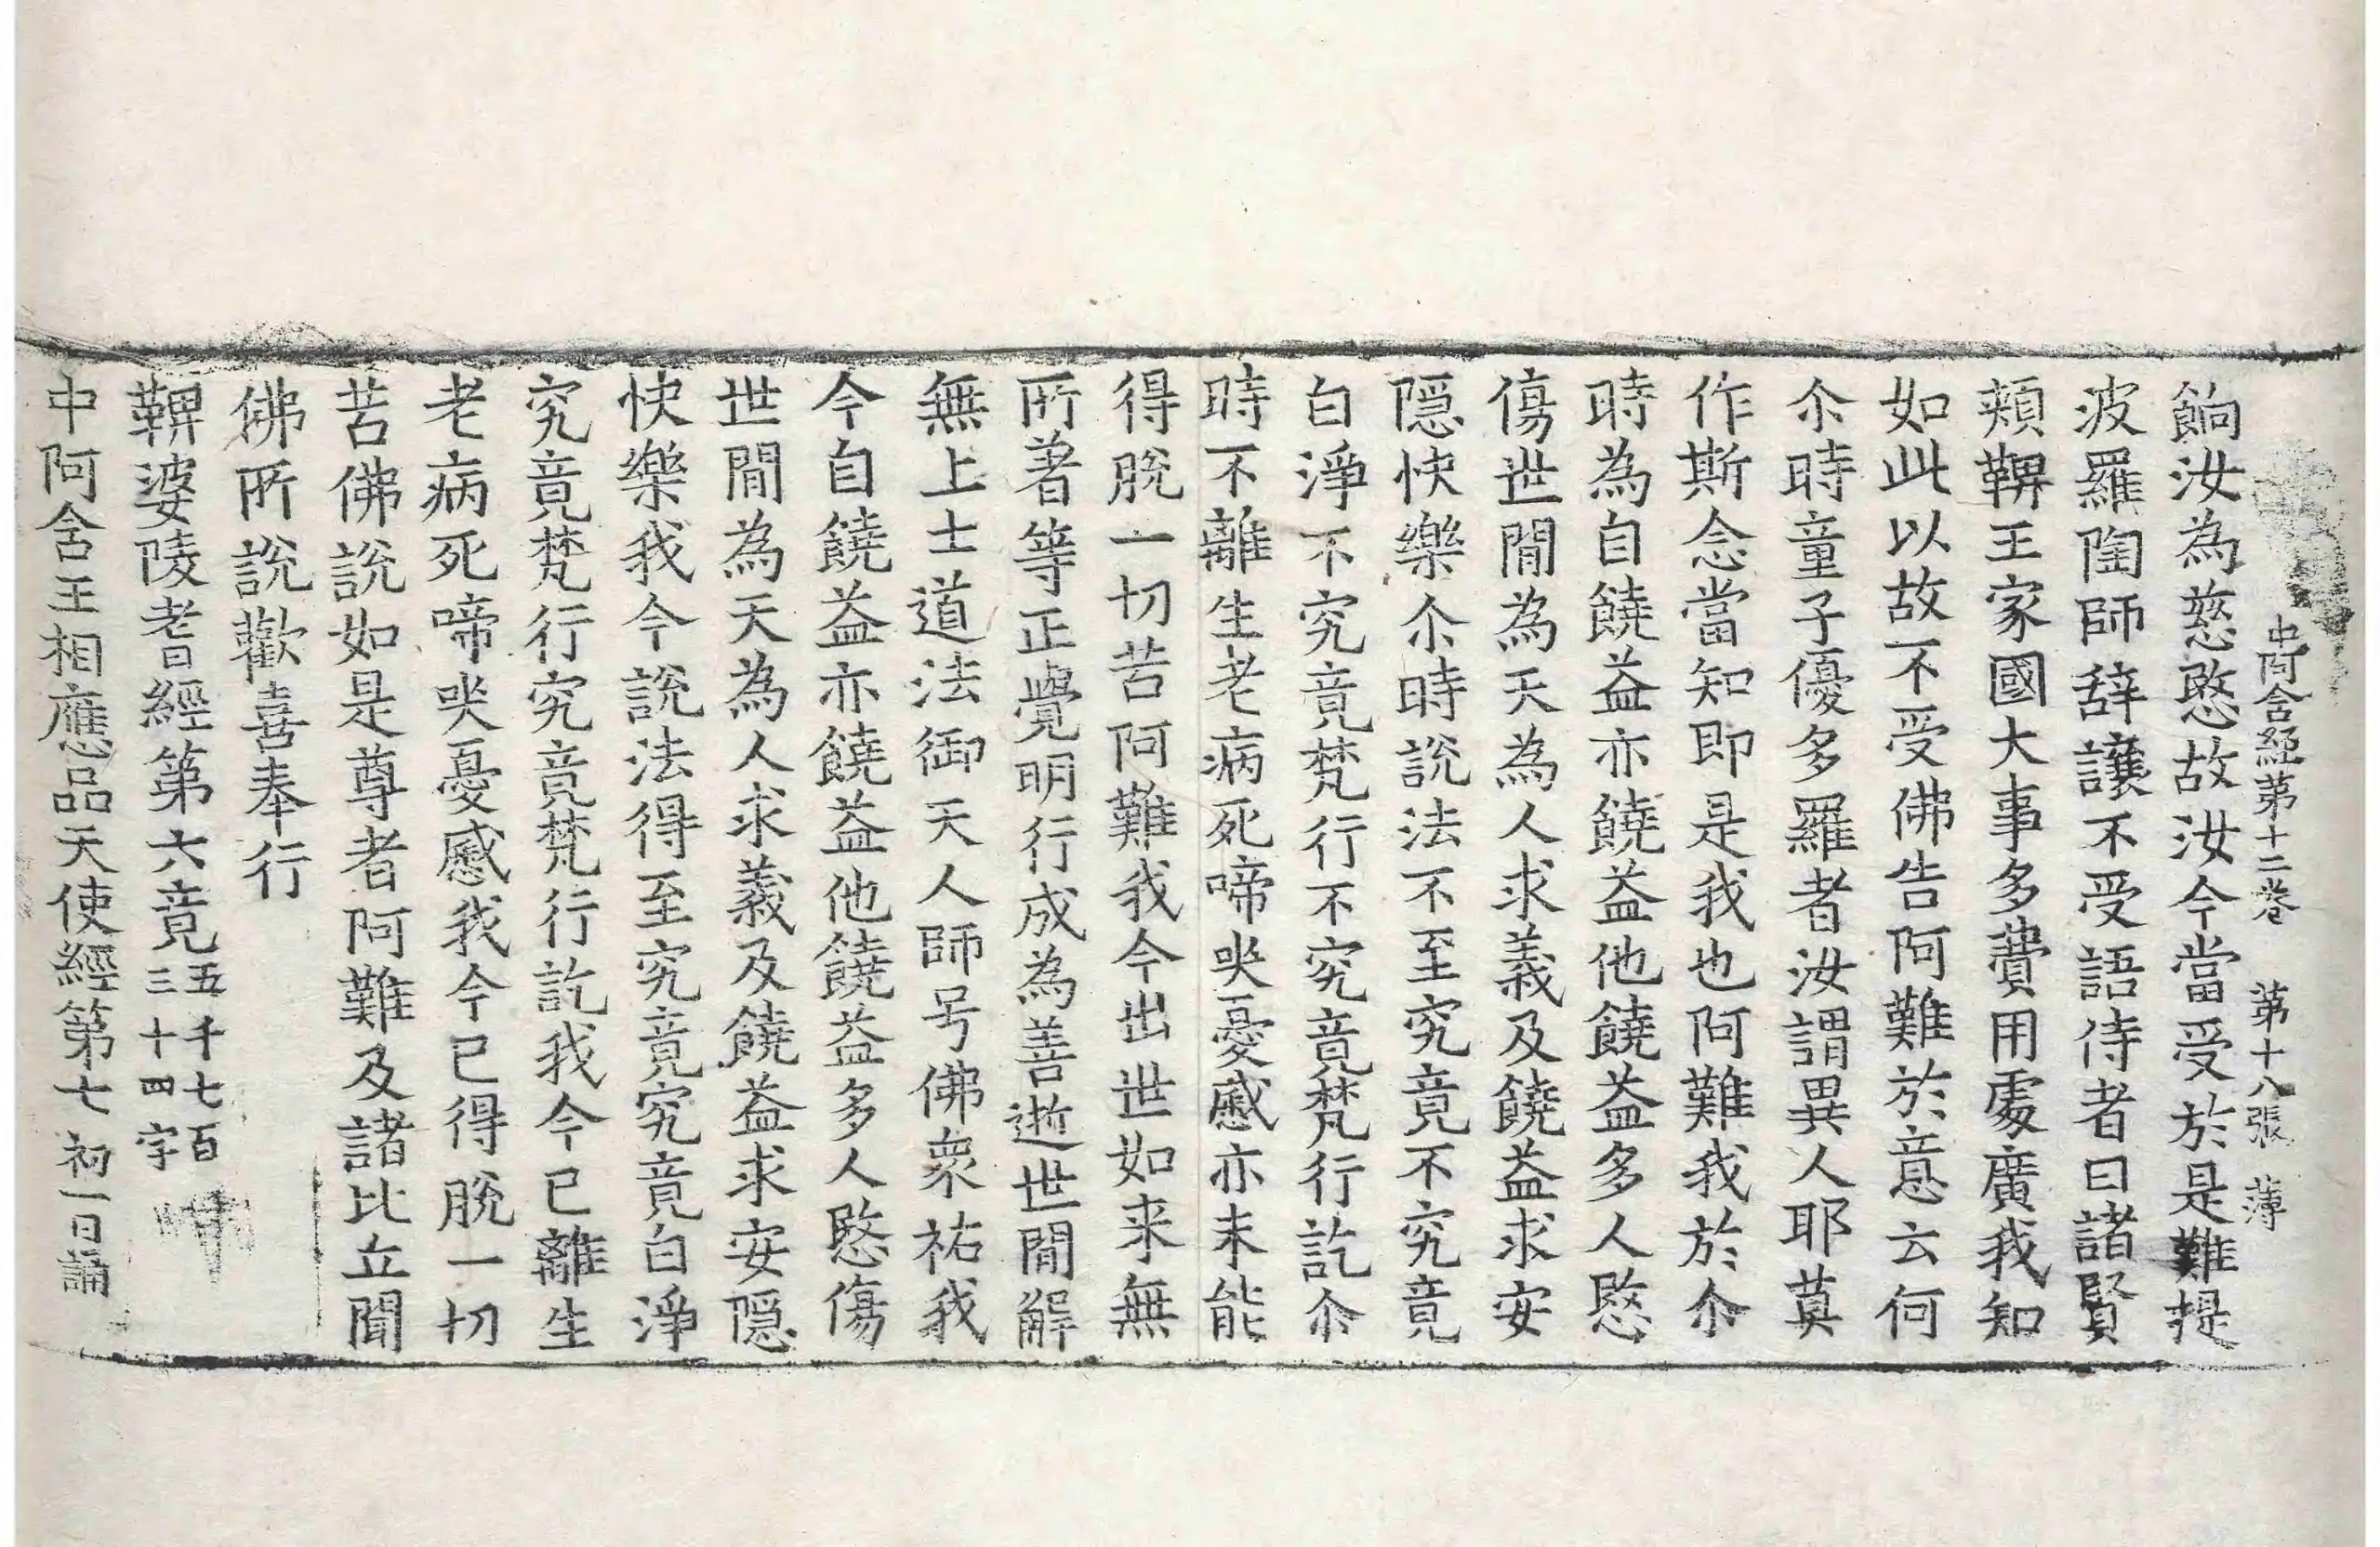 中阿含經第十二卷　第十八張　薄
餉汝為慈愍故汝今當受於是難提
波羅陶師辝讓不受語侍者曰諸賢
頰鞞王家國大事多費用處廣我知
如此以故不受佛告阿難於意云何
尒時童子優多羅者汝謂異人耶莫
作斯念當知即是我也阿難我於尒
時為自饒益亦饒益他饒益多人愍
傷世間為天為人求義及饒益求安
隱快樂尒時說法不至究竟不究竟
白淨不究竟梵行不究竟梵行訖尒
時不離生老病死啼哭憂慼亦未能
得脫一切苦阿難我今出世如来無
所著等正覺明行成為善逝世間解
無上士道法御天人師号佛衆祐我
今自饒益亦饒益他饒益多人愍傷
世間為天為人求義及饒益求安隱
快樂我今說法得至究竟究竟白淨
究竟梵行究竟梵行訖我今已離生
老病死啼哭憂慼我今已得脫一切
苦佛說如是尊者阿難及諸比丘聞
佛所說歡喜奉行
鞞婆陵耆經第六竟五千七百三十四字
中阿含王相應品天使經第七初一日誦